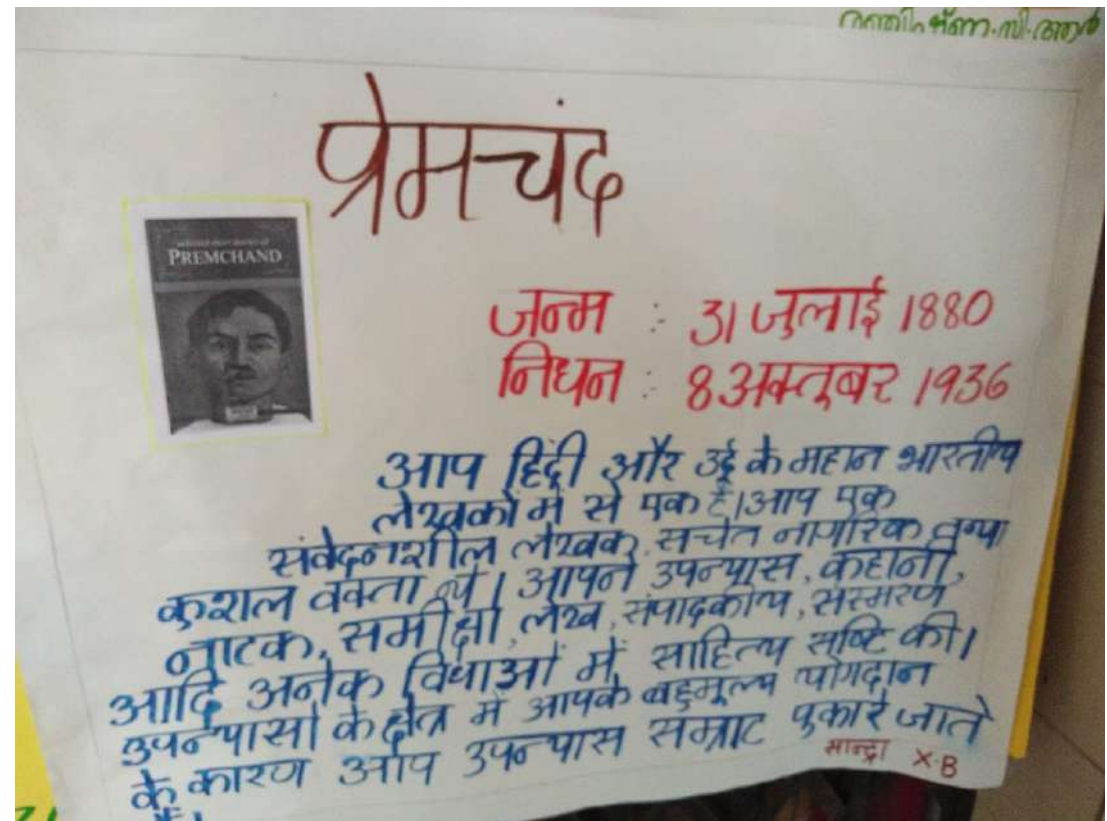 സി.ആർ
प्रेमचंद
SELECTED SHORT STORIES OF
PREMCHAND
जन्म : 31 जुलाई 1880
निधन : 8 अक्तूबर 1936
आप हिंदी और उर्दू के महान भारतीय
लेखकों में से एक हैं। आप एक
संवेदनशील लेखक, सचेत नागरिक तथा
कुशल वक्ता थे। आपने उपन्यास, कहानी,
नाटक, समीक्षा, लेख, संपादकीय, संस्मरण
आदि अनेक विधाओं में साहित्य सृष्टि की।
उपन्यासों के क्षेत्र में आपके बहुमूल्य योगदान
के कारण आप उपन्यास सम्राट पुकारे जाते
हैं।
सान्द्रा X-B